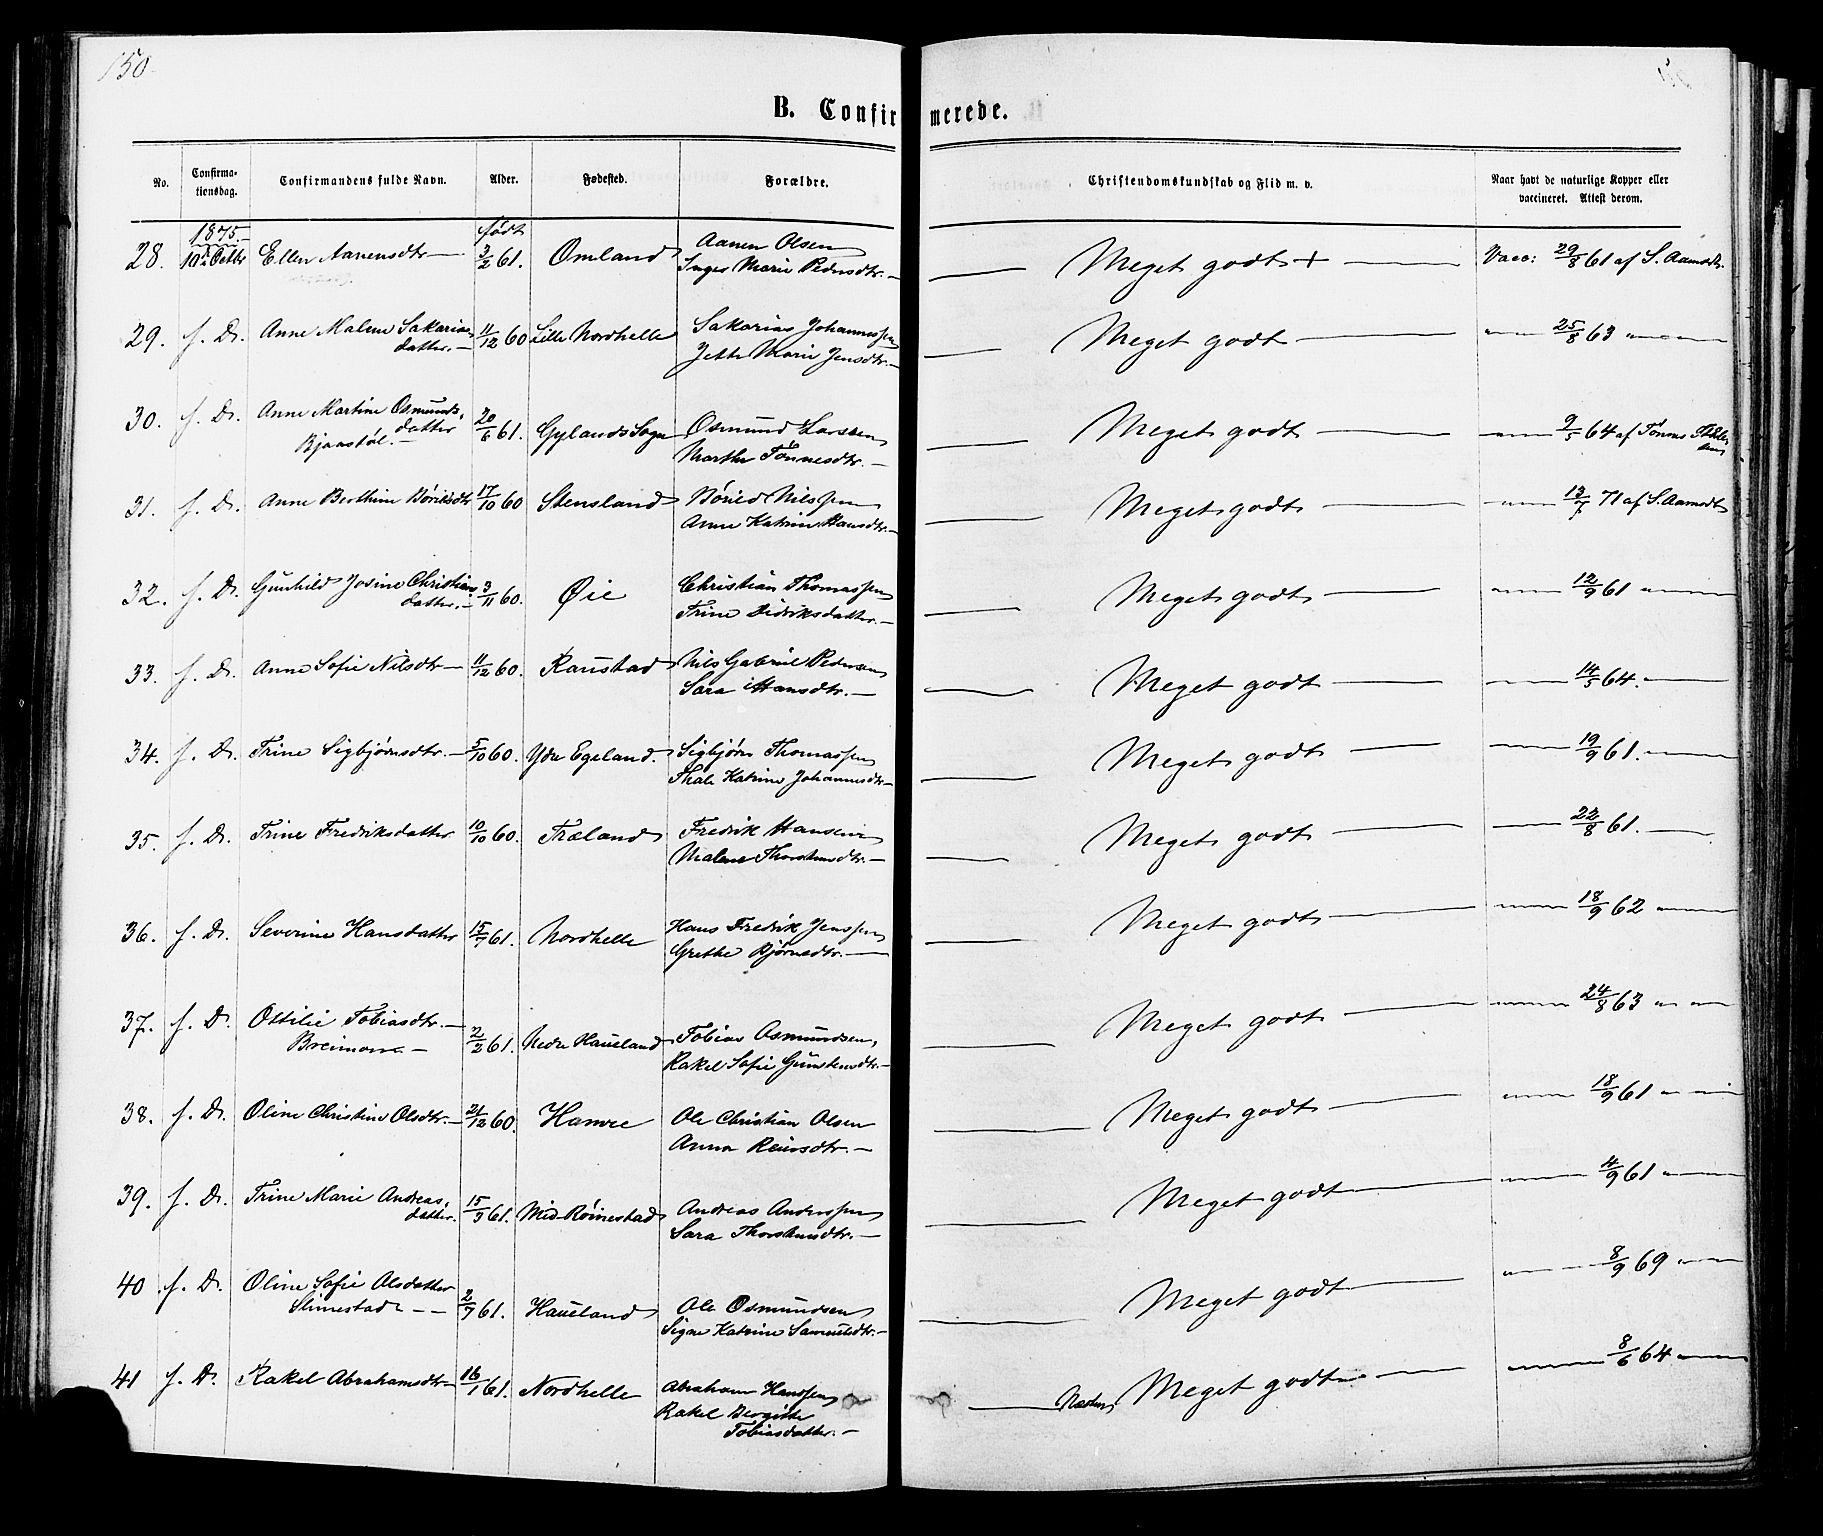 150
B. Confirmerede.
No. Confirmationsdag. Confirmandens fulde Navn. Alder. Fødested. Forældre. Christendomskundskab og Flid m. v. Naar havt de naturlige Kopper eller vaccineret. Attest derom.
1875. født
28. 10de Octbr Ellen Aanensdtr 3/2 61. Omland Aanen Olsen Meget godt + Vacc: 29/8 61 af S. Aamodt
Inger Marie Pedersdtr.
29. s. D. Anne Malene Sakarias 11/12 60 Lille Nordhelle Sakarias Johannessen Meget godt 25/8 63
datter. Jette Marie Jensdtr.
30. s. D. Anne Martine Osmunds 20/6 61. Gylands Sogn Osmund Larssen Meget godt 9/5 64 af Tönnes
datter
Bjaastöl. Marthe Tönnesdtr.
31. s. D. Anne Berthine 17/10 60 Stensland Nilssen Meget godt 13/7 71 af S. Aamodt
Anne Katrine Hansdtr.
32. s. D. Gunhild Josine Christians 3/11 60. Øie Christian Thomassen Meget godt 12/9 61
datter. Trine Didriksdatter.
33. s. D. Anne Sofie Nilsdtr 11/12 60. Raustad Nils Gabriel Pedersen Meget godt 14/5 64.
Sara Hansdtr.
34. s. D. Trine Sigbjørnsdtr. 5/10 60. Ydre Egeland. Sigbjörn Thomassen Meget godt 19/9 61.
Thale Katrine Johannesdtr
35. s. D. Trine Fredriksdatter 10/10 60. Træland Fredrik Hansen Meget godt 22/8 61.
Malene Thorstensdtr.
36. s. D. Severine Hansdatter 15/7 61. Nordhelle Hans Fredrik Jenssen Meget godt 18/9 62
Grethe Bjørnsdtr.
37. s. D. Ottilie Tobiasdtr. 2/2 61. Nedre Haueland Tobias Osmundsen Meget godt 24/8 63
Breimoen Rakel Sofie Gunstensdtr.
38. s. D. Oline Christine Olsdtr. 21/12 60. Hamre Ole Christian Olsen Meget godt 18/9 61
Anna Reiersdtr.
39. s. D. Trine Marie Andreas 15/3 61. Med-Röinestad Andreas Anderssen Meget godt 4/9 61
datter. Sara Thorstensdtr.
40 s. D. Oline Sofie Olsdatter 2/7 61. Haueland Ole Osmundsen Meget godt 8/9 69
Slimestad Signe Katrine Samueldtr.
41 s. D. Rakel Abrahamsdtr 16/1 61. Nordhelle Abraham Hanssen Næsten Meget godt 8/6 64
Rakel Bergitte
Tobiasdatter.